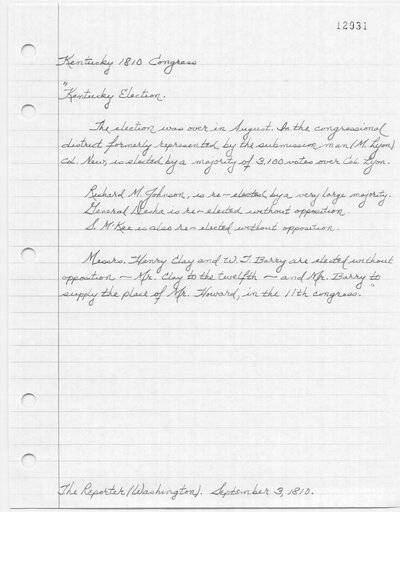 12931
Kentucky 1810 Congress
"
Kentucky Election.
The election was over in August. In the congressional
district formerly represented by the submission man (M. Lyon)
Col. New, is elected by a majority of 3,100 votes over Col. Lyon.
Richard M. Johnson, is re-elected by a very large majority.
General Desha is re-elected without opposition.
S. McKee is also re-elected without opposition.
Messrs. Henry Clay and W. T. Barry are elected without
opposition — Mr. Clay to the twelfth — and Mr. Barry to
supply the place of Mr. Howard, in the 11th congress."
The Reporter (Washington). September 3, 1810.